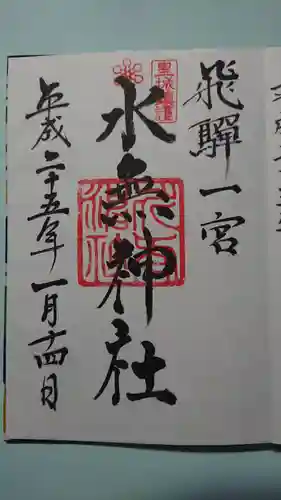 飛騨一宮
水無神社
平成二十五年一月十四日